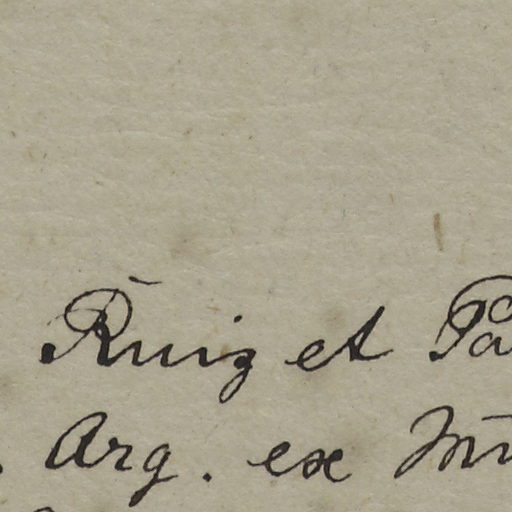 Ruiz et Pa
Arg. ex